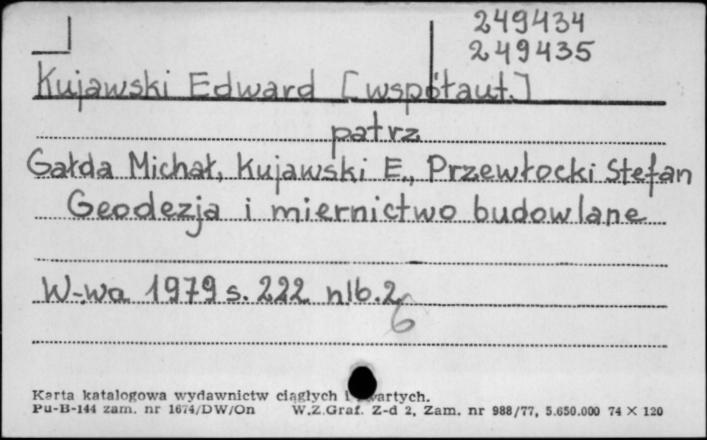 249434
249435
Kujawski Edward [współaut.]
patrz
Gałda Michał, Kujawski E., Przewłocki Stefan
Geodezja i miernictwo budowlane
W-wa 1979 s. 222 nlb. 2
6
Karta katalogowa wydawnictw ciągłych i zwartych.
Pu-B-144 zam. nr 1674/DW/On W.Z.Graf. Z-d 2, Zam. nr 988/77, 5.650.000 74 × 120